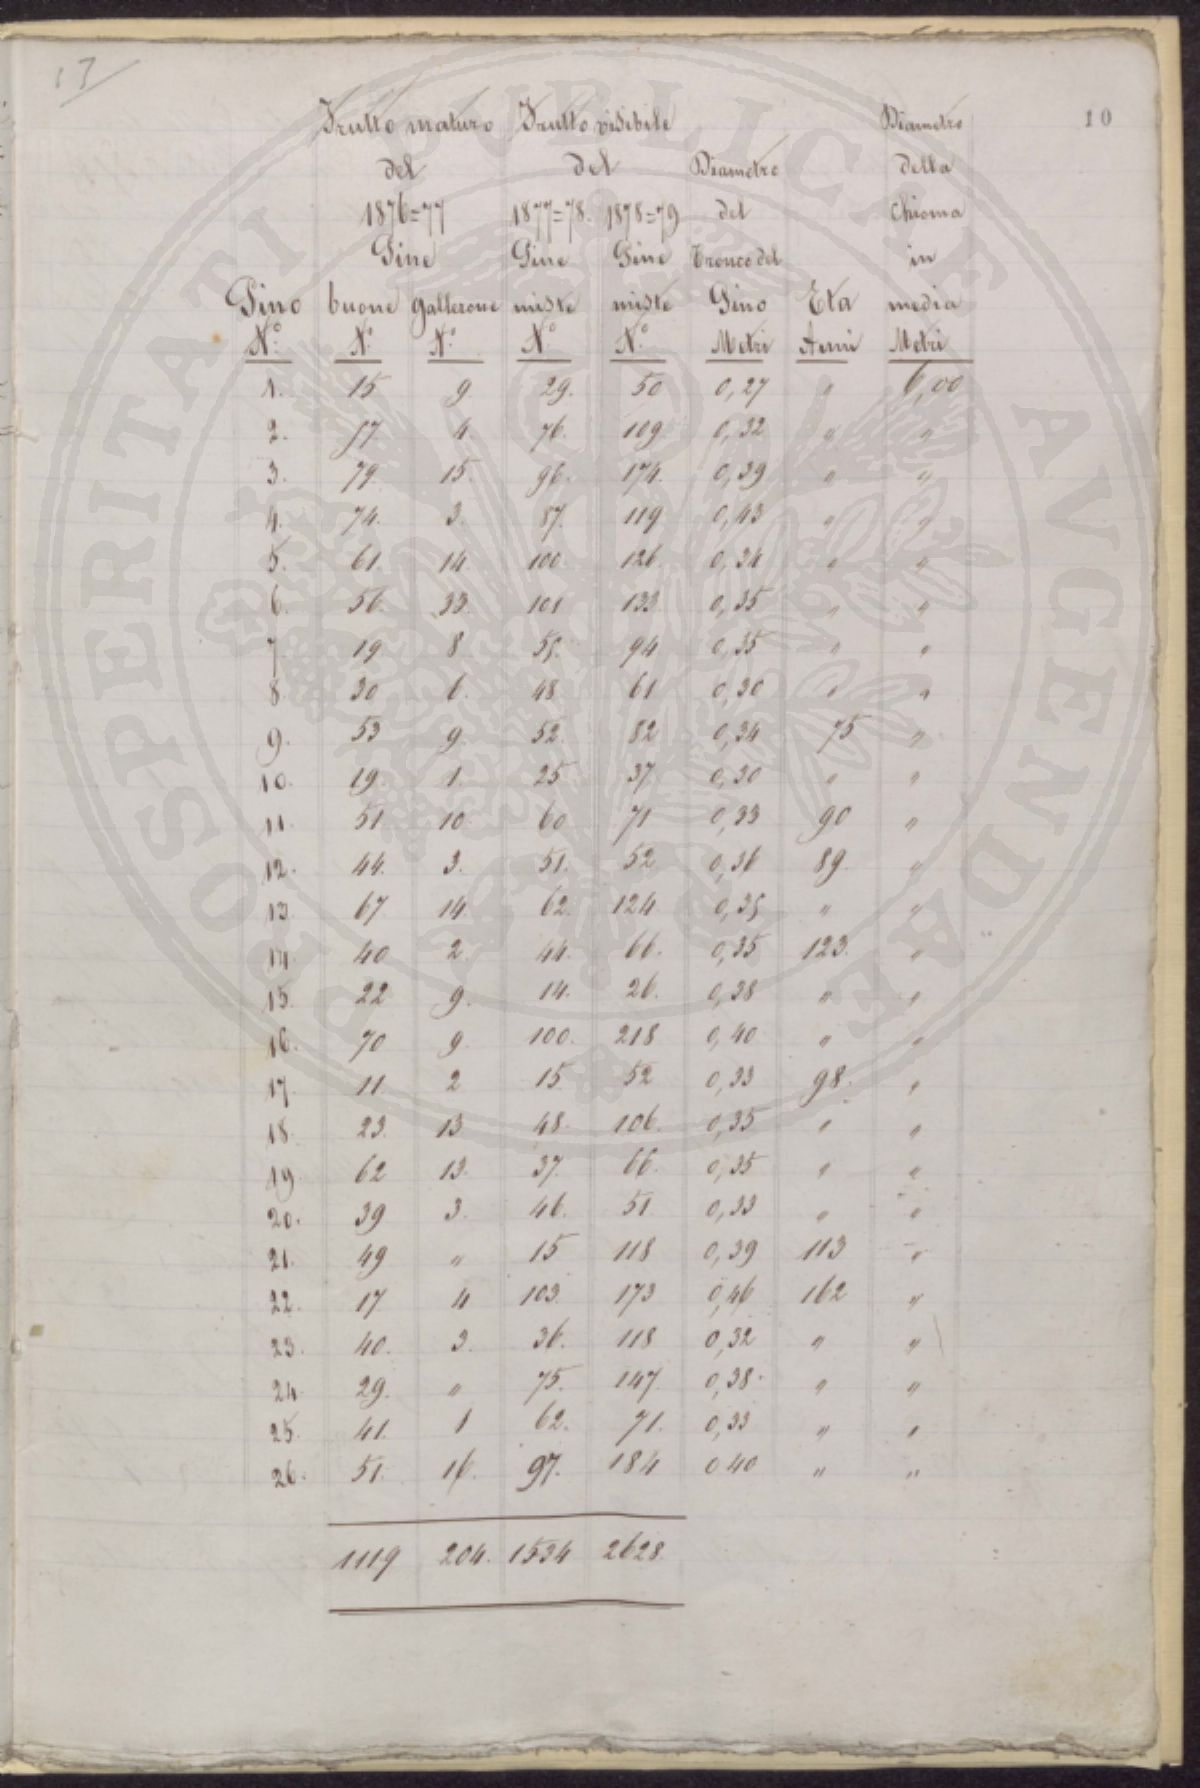 13
10
Frutto maturo Frutto visibile Diametro
del del Diametro della
1876=77 1877=78. 1878=79 del chioma
Pine Pine Pine Tronco del in
Pino buone gallerone miste miste Pino Età media
N.° N.° N.° N.° N.° Metri Anni Metri
1. 15 9 29. 50 0,27 " 6,00
2. 57 4 76. 109 0,32 " "
3. 79. 15. 96. 174. 0,39 " "
4. 74. 3. 87. 119 0,43 " "
5. 61. 14 100. 126. 0,34 " "
6. 56. 33. 101 133. 0,35 " "
7. 19 8 55. 94 0,35 " "
8 30 6. 48. 61 0,30 " "
9. 53 9. 52. 82 0,34 75 "
10. 19. 1. 25 37. 0,30 " "
11. 51. 10. 60 71 0,33 90 "
12. 44. 3. 51. 52 0,36 89. "
13. 67 14. 62. 124. 0,35 " "
14. 40 2. 44. 66. 0,35 123. "
15. 22 9. 14. 26. 0,38 " "
16. 70 9. 100. 218 0,40 " "
17. 11. 2 15. 52 0,33 98. "
18. 23. 13 48. 106. 0,35 " "
19. 62 13. 37. 66. 0,35 " "
20. 39 3. 46. 51 0,33 " "
21. 49 " 15 118 0,39 113 "
22. 17 4 103. 173 0,46 162 "
23. 40. 3. 36. 118 0,32 " "
24 29. " 75. 147 0,38. " "
25. 41. 1 62. 71. 0,33 " "
26. 51. 16. 97. 184 0 40 " "
1119 204. 1534 2628
PROSPERITATI PUBLICAE AVGENDAE